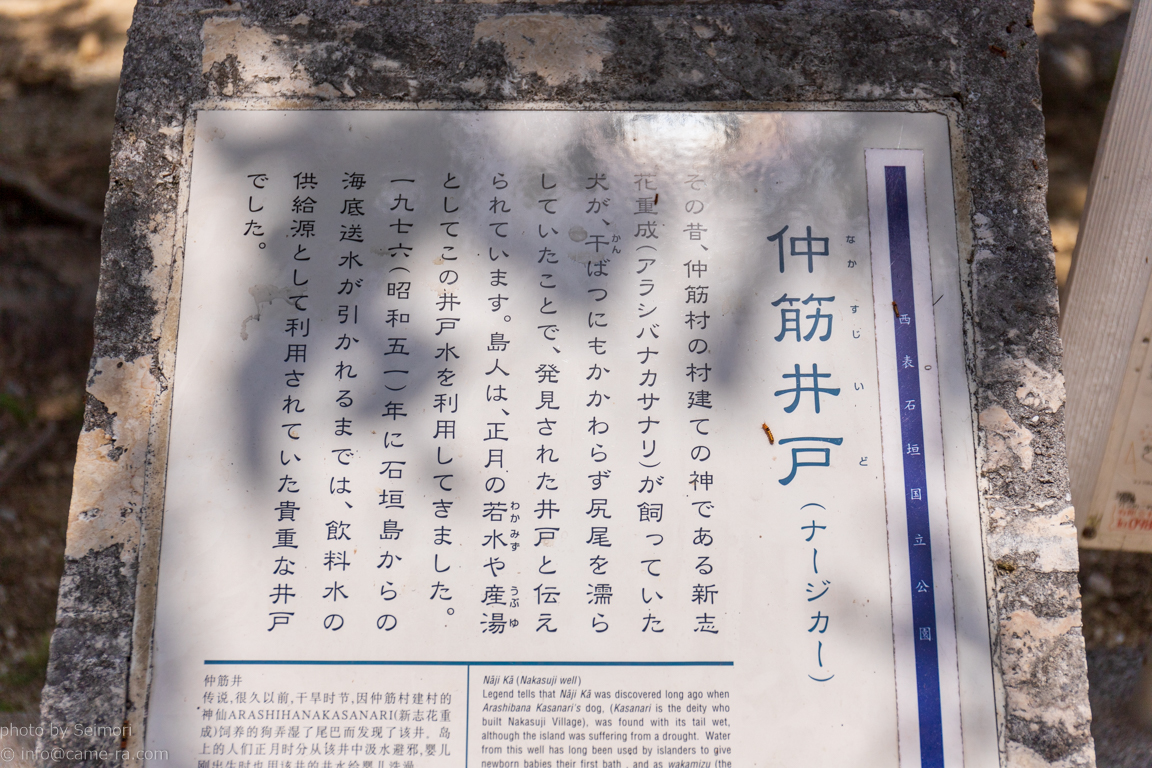 西表石垣国立公園
なかすじいど
仲筋井戸(ナージカー)
その昔、仲筋村の村建ての神である新志
花重成(アラシバナカサナリ)が飼っていた
かん
犬が、干ばつにもかかわらず尻尾を濡ら
していたことで、発見された井戸と伝え
られています。島人は、正月の若水や産湯
わかみず
うぶゆ
としてこの井戸水を利用してきました。
一九七六(昭和五一)年に石垣島からの
海底送水が引かれるまでは、飲料水の
供給源として利用されていた貴重な井戸
でした。
仲筋井
传说,很久以前,干旱时节,因仲筋村建村的
神仙ARASHIHANAKASANARI(新志花重
成)饲养的狗弄湿了尾巴而发现了该井。岛
上的人们正月时分从该井中汲水避邪,婴儿
刚出生时也用该井的井水给婴儿洗澡
Nāji Kā (Nakasuji well)
Legend tells that Nāji Kā was discovered long ago when
Arashibana Kasanari's dog, (Kasanari is the deity who
built Nakasuji Village), was found with its tail wet,
although the island was suffering from a drought. Water
from this well has long been used by islanders to give
newborn babies their first bath , and as wakamizu (the
photo by Seimori
© info@came-ra.com